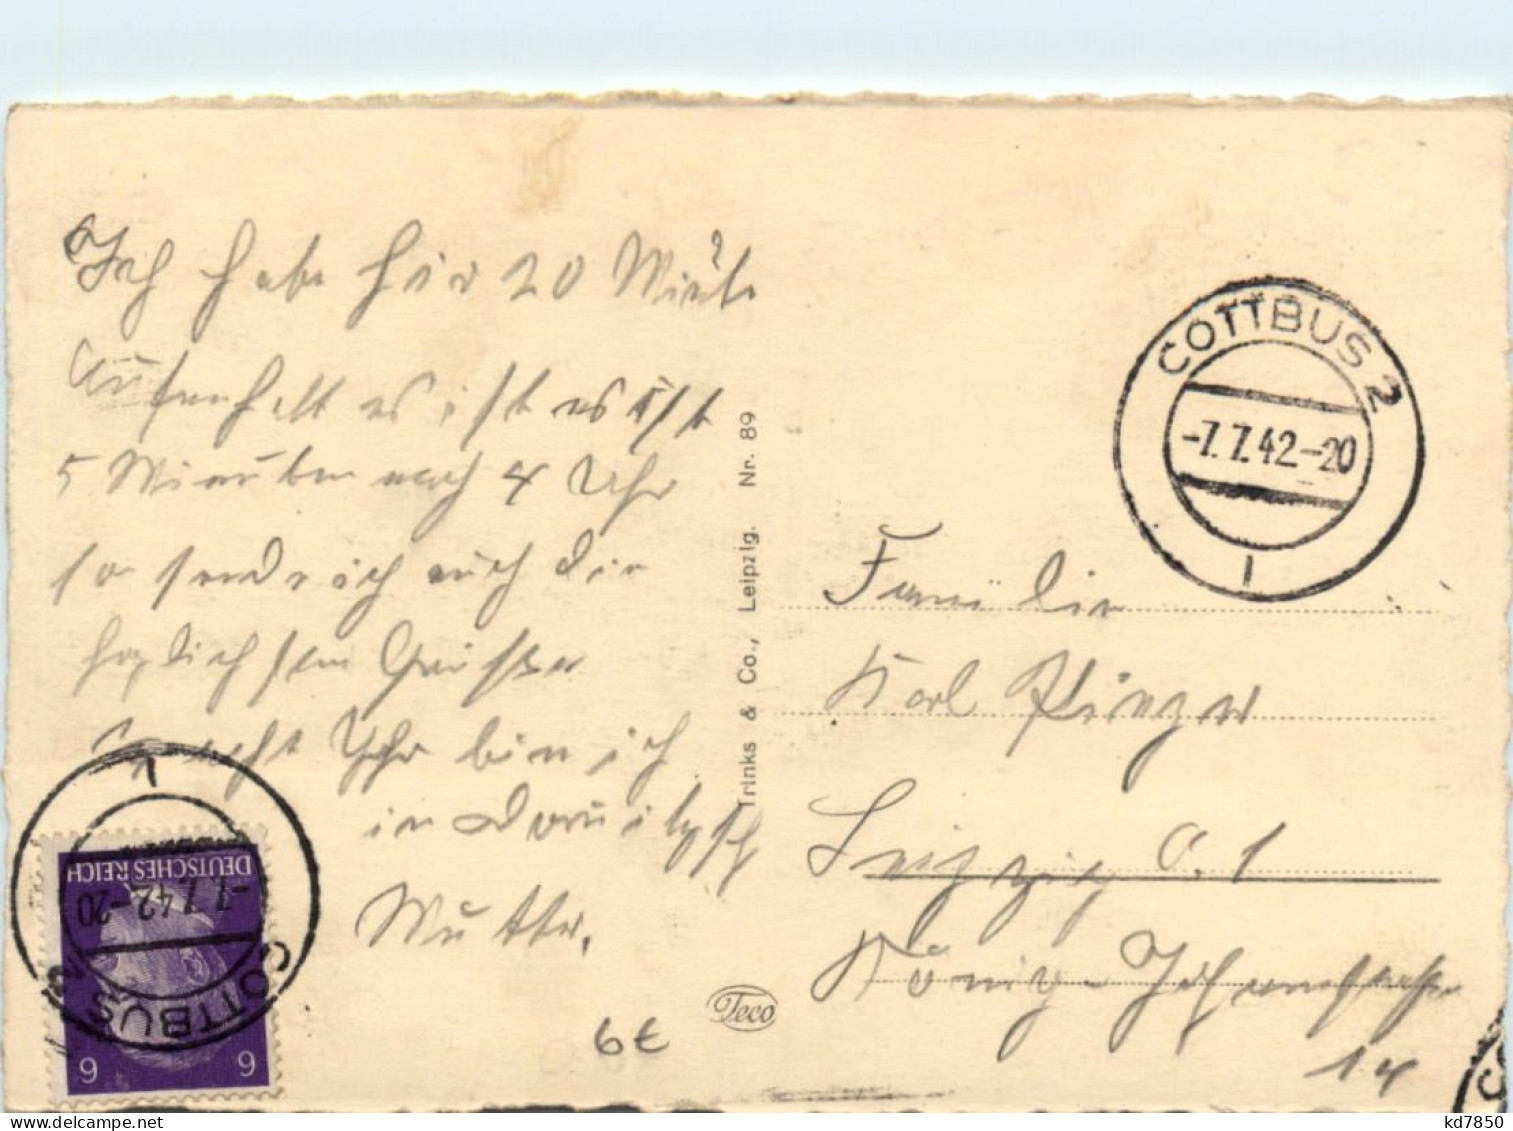 Ich habe hir 20 Minute
Aufenhalt es ist es ist
5 Minuten nach 4 Uhr
so sende ich euch die
herzlichsten Grüße
acht Uhr bin ich
in
Mutter.
DEUTSCHES REICH
6 6
COTTBUS 2
-7.7.42-20
1
Trinks & Co., Leipzig. Nr. 89
Teco
6€
COTTBUS 2
-7.7.42-20
1
Familie
Karl
Leipzig O.1
König-Johannstraße
14
kd7850